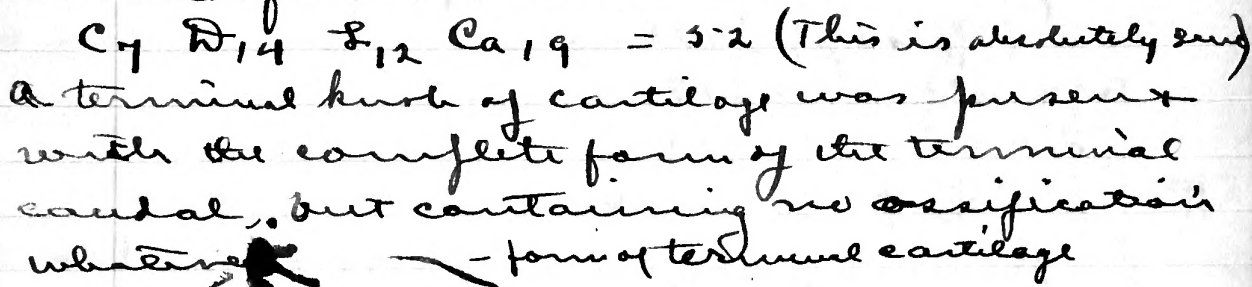 C7 D,14 L,12 Ca,19 = 52 (This is absolutely sure)
A terminal knob of cartilage was present
with the complete form of the terminal
caudal, but containing no ossification
whatever - form of terminal cartilage